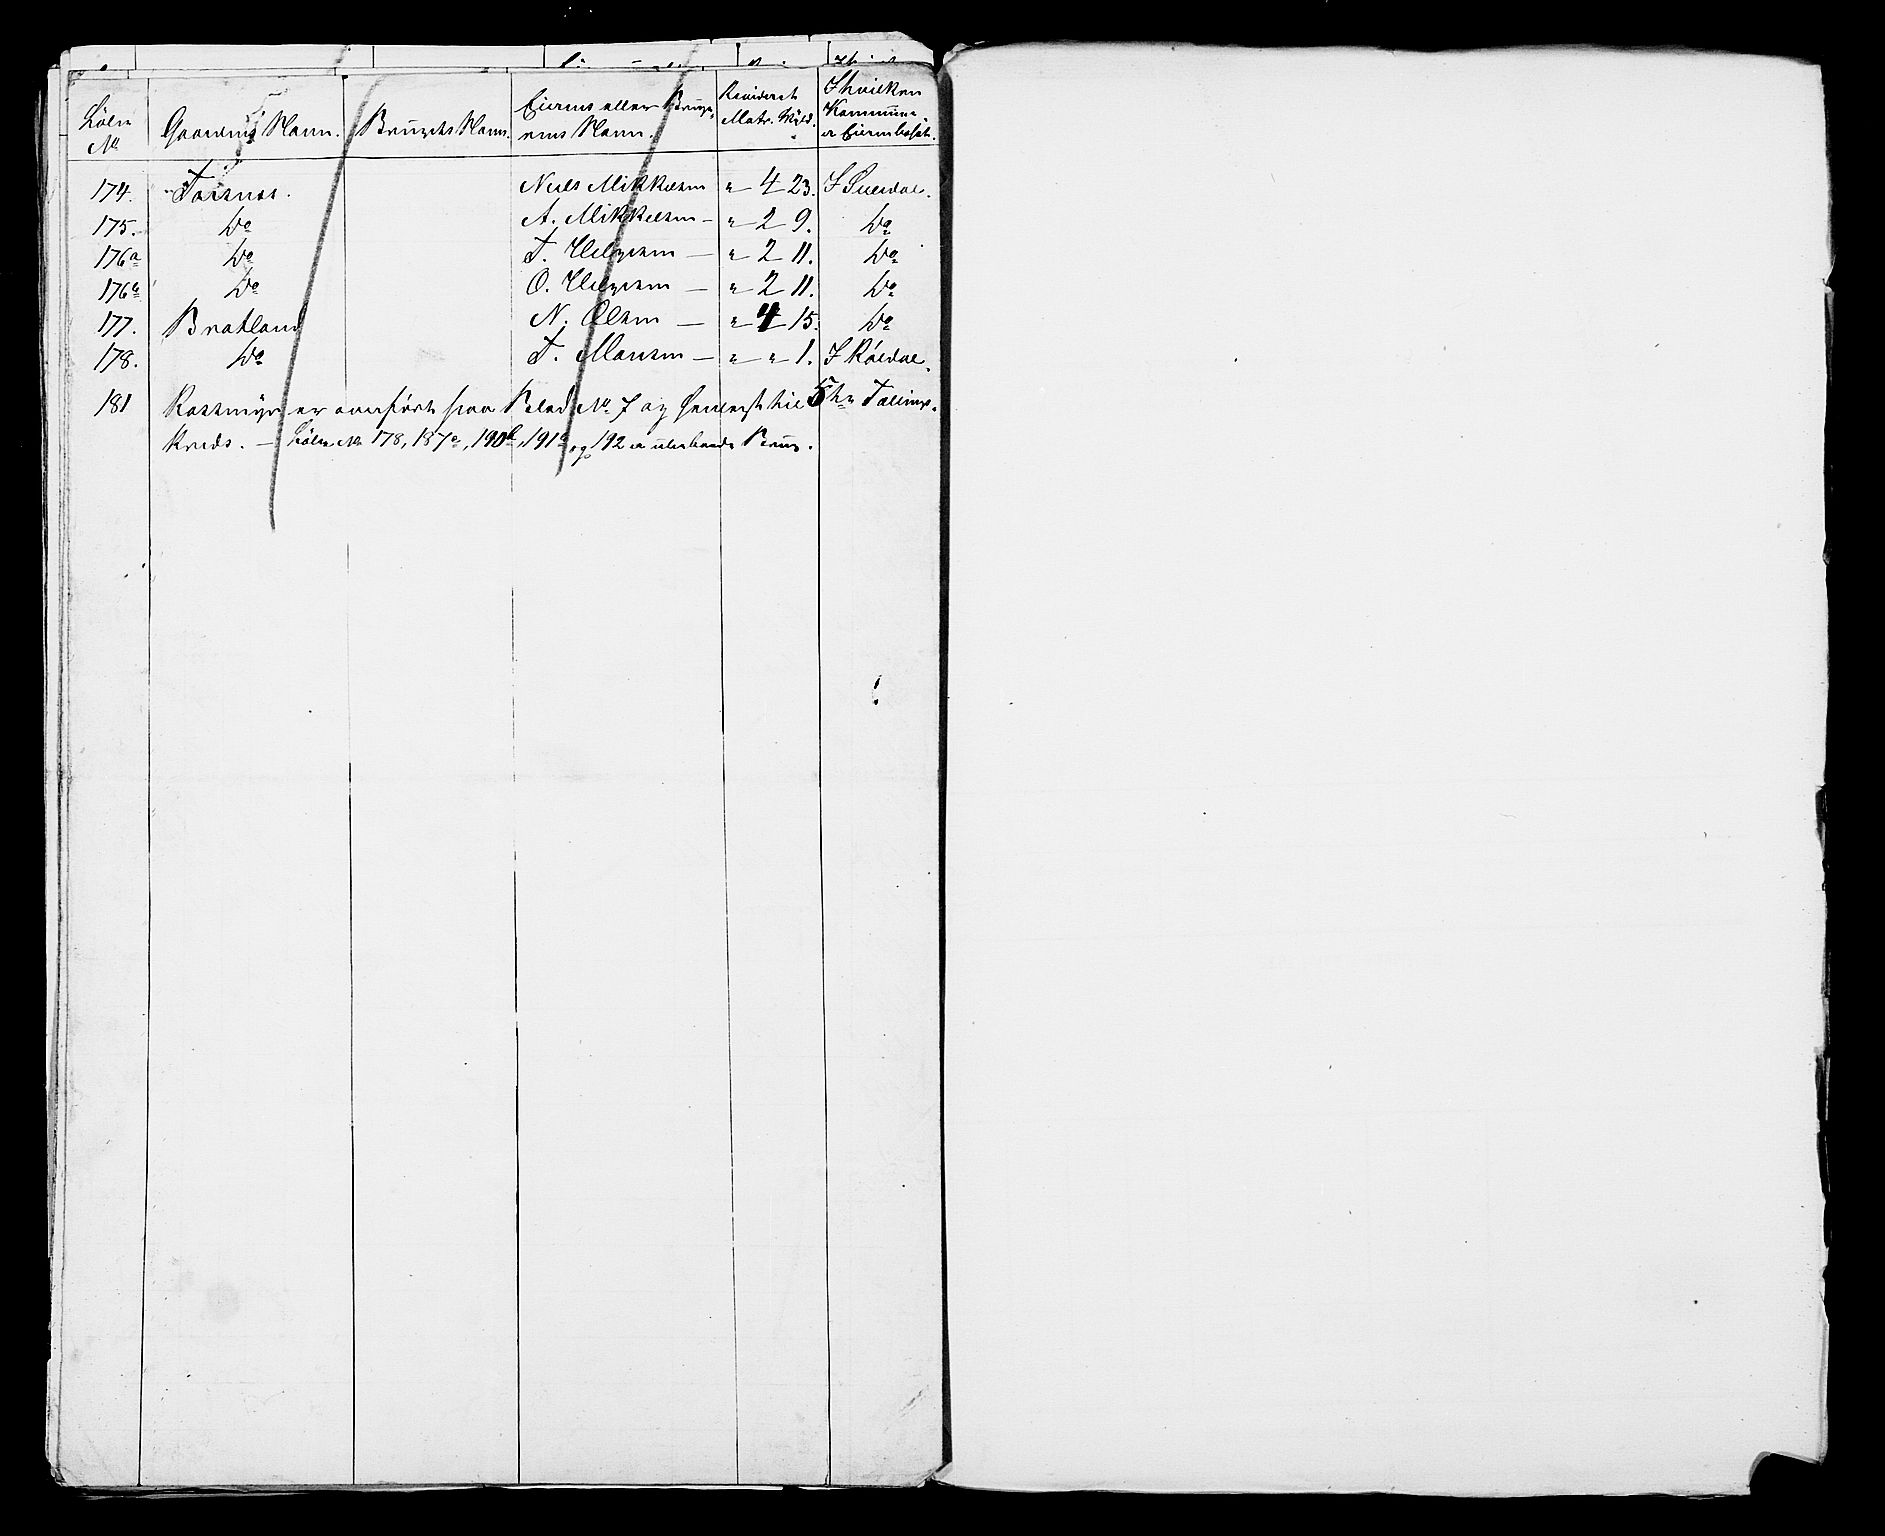 Löbe No
Gaardens Navn.
Brugets Navn.
Eierens eller Bruge-
rens Navn.
Revideret
Matr. Skyld.
I hvilken
Kommune
er Eieren bosat.
174. Niels Mikkelsen " 4 23. I Suledal.
175. Do A. Mikkelsen — " 2 9. Do
176a Do T. Helgesen — " 2 11. Do
176b Do O. Helgesen — " 2 11. Do
177. Bratland N. Olsen — " 4 15. Do
178. Do T. Monsen — " " 1. I Röldal.
181 Rossmyr er overfört paa Blad No 7 og henlagt til 5te Tællings-
kreds. — Löbe No 178, 187a, 190b, 191b og 192 er ubeboede Brug.